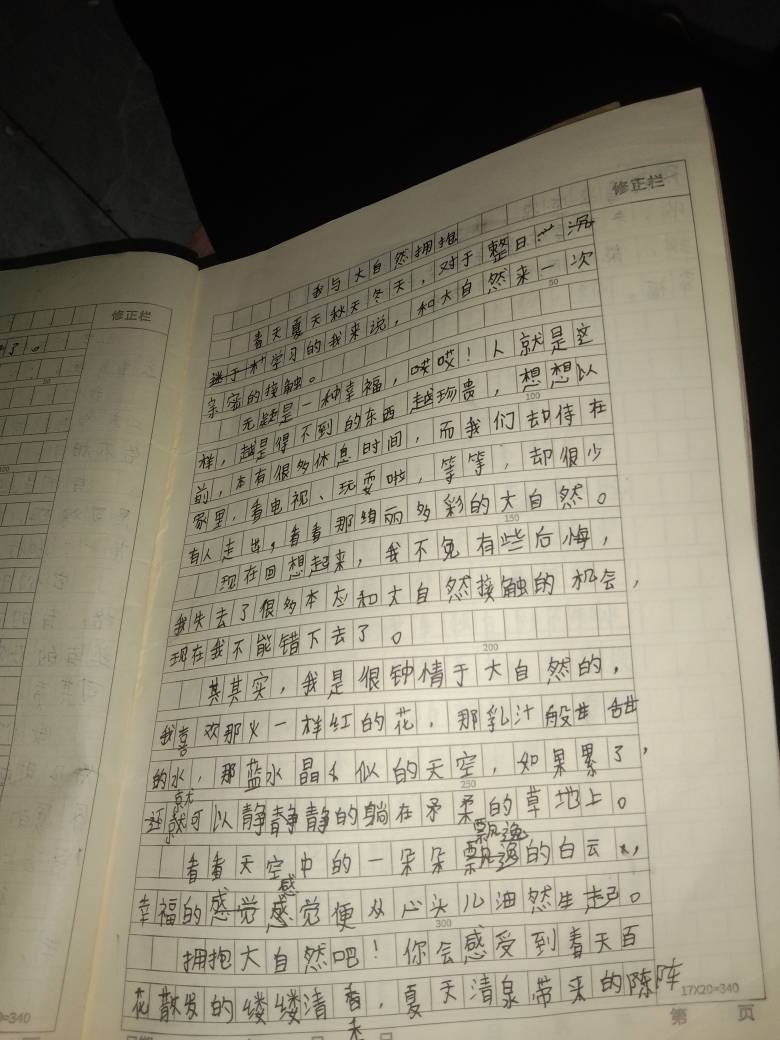 修正栏
修正栏
了。
我与大自然拥抱
春天夏天秋天冬天，对于整日沉
迷于学习的我来说，和大自然来一次
亲密的接触。
无疑是一种幸福，哎哎！人就是这
样，越是得不到的东西越珍贵，想想以
前，本有很多休息时间，而我们却待在
家里，看电视、玩耍啦，等等，却很少
有人走出，看看那绚丽多彩的大自然。
现在回想起来，我不免有些后悔，
我失去了很多本应和大自然接触的机会，
现在我不能错下去了。
其其实，我是很钟情于大自然的，
我喜欢那火一样红的花，那乳汁般甘甜
的水，那蓝水晶么似的天空，如果累了，
还就可以静静静的躺在矛柔的草地上。
看看天空中的一朵朵飘逸的白云，
幸福的感觉感觉便从心头儿油然生起。
拥抱大自然吧！你会感受到春天百
花散发的缕缕清香，夏天清泉带来的陈阵
50
100
150
200
250
300
17X20=340
=340
第 页